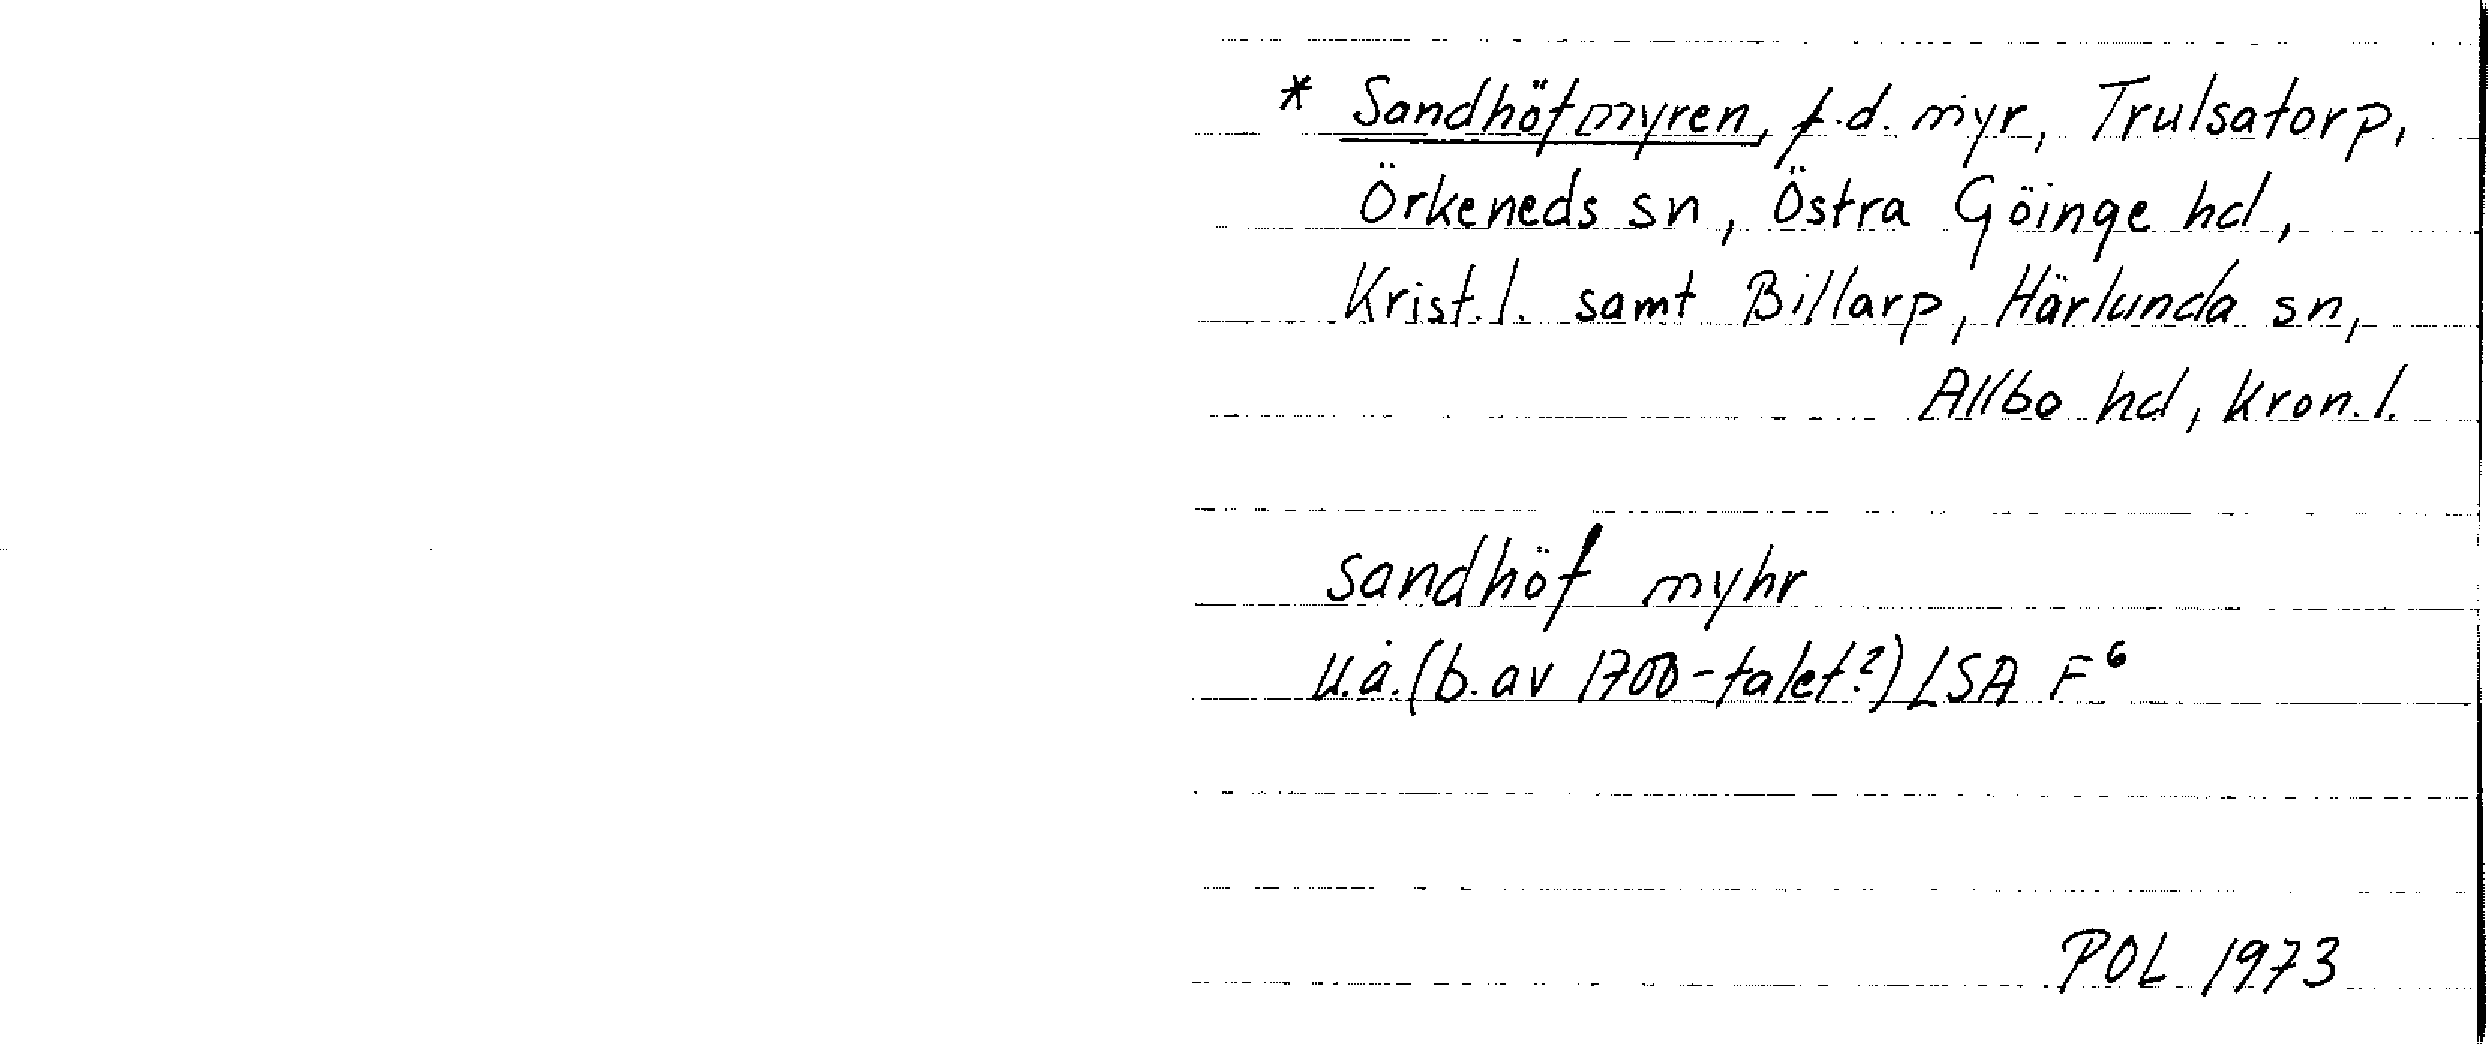 * Sandhöfmyren, f.d. myr, Trulsatorp,
Örkeneds sn, Östra Göinge hd,
Krist.l. samt Billarp, Härlunda sn,
Allbo hd, Kron.l.
sandhöf myhr
u.å. (b. av 1700-talet?) LSA F⁶
POL 1973